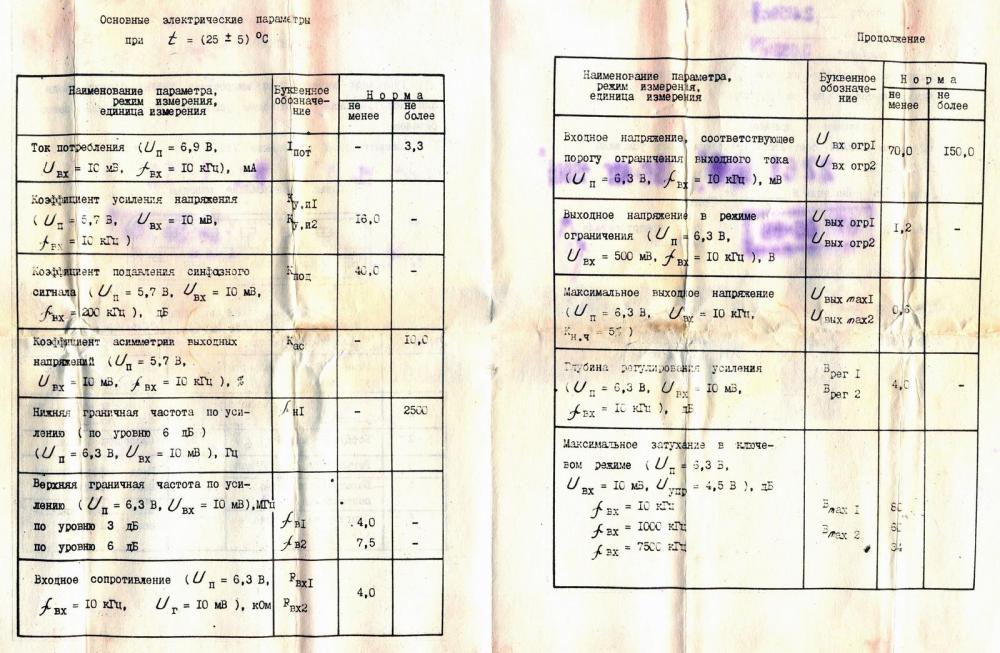 Основные электрические параметры
при t = (25 ± 5) °C
Наименование параметра,
режим измерения,
единица измерения
Буквенное
обозначе-
ние
Норма
не
менее
не
более
Ток потребления (Uп = 6,9 В,
Uвх = 10 мВ, fвх = 10 кГц), мА
Iпот
-
3,3
Коэффициент усиления напряжения
(Uп = 5,7 В, Uвх = 10 мВ,
fвх = 10 кГц)
Kу,п1
Kу,п2
16,0
-
Коэффициент подавления синфазного
сигнала (Uп = 5,7 В, Uвх = 10 мВ,
fвх = 200 кГц), дБ
Kпод
40,0
-
Коэффициент асимметрии выходных
напряжений (Uп = 5,7 В,
Uвх = 10 мВ, fвх = 10 кГц), %
Kас
-
10,0
Нижняя граничная частота по уси-
лению (по уровню 6 дБ)
(Uп = 6,3 В, Uвх = 10 мВ), Гц
fн1
-
2500
Верхняя граничная частота по уси-
лению (Uп = 6,3 В, Uвх = 10 мВ), МГц
по уровню 3 дБ
fв1
4,0
-
по уровню 6 дБ
fв2
7,5
-
Входное сопротивление (Uп = 6,3 В,
fвх = 10 кГц, Uг = 10 мВ), кОм
Rвх1
Rвх2
4,0
Продолжение
Наименование параметра,
режим измерения,
единица измерения
Буквенное
обозначе-
ние
Норма
не
менее
не
более
Входное напряжение, соответствующее
порогу ограничения выходного тока
(Uп = 6,3 В, fвх = 10 кГц), мВ
Uвх огр1
Uвх огр2
70,0
150,0
Выходное напряжение в режиме
ограничения (Uп = 6,3 В,
Uвх = 500 мВ, fвх = 10 кГц), В
Uвых огр1
Uвых огр2
1,2
-
Максимальное выходное напряжение
(Uп = 6,3 В, Uвх = 10 кГц,
Kн.ч = 5%)
Uвых max1
Uвых max2
0,6
Глубина регулирования усиления
(Uп = 6,3 В, Uвх = 10 мВ,
fвх = 10 кГц), дБ
Bрег 1
Bрег 2
4,0
-
Максимальное затухание в ключе-
вом режиме (Uп = 6,3 В,
Uвх = 10 мВ, Uупр = 4,5 В), дБ
fвх = 10 кГц
Bmax 1
fвх = 1000 кГц
Bmax 2
fвх = 7500 кГц
34